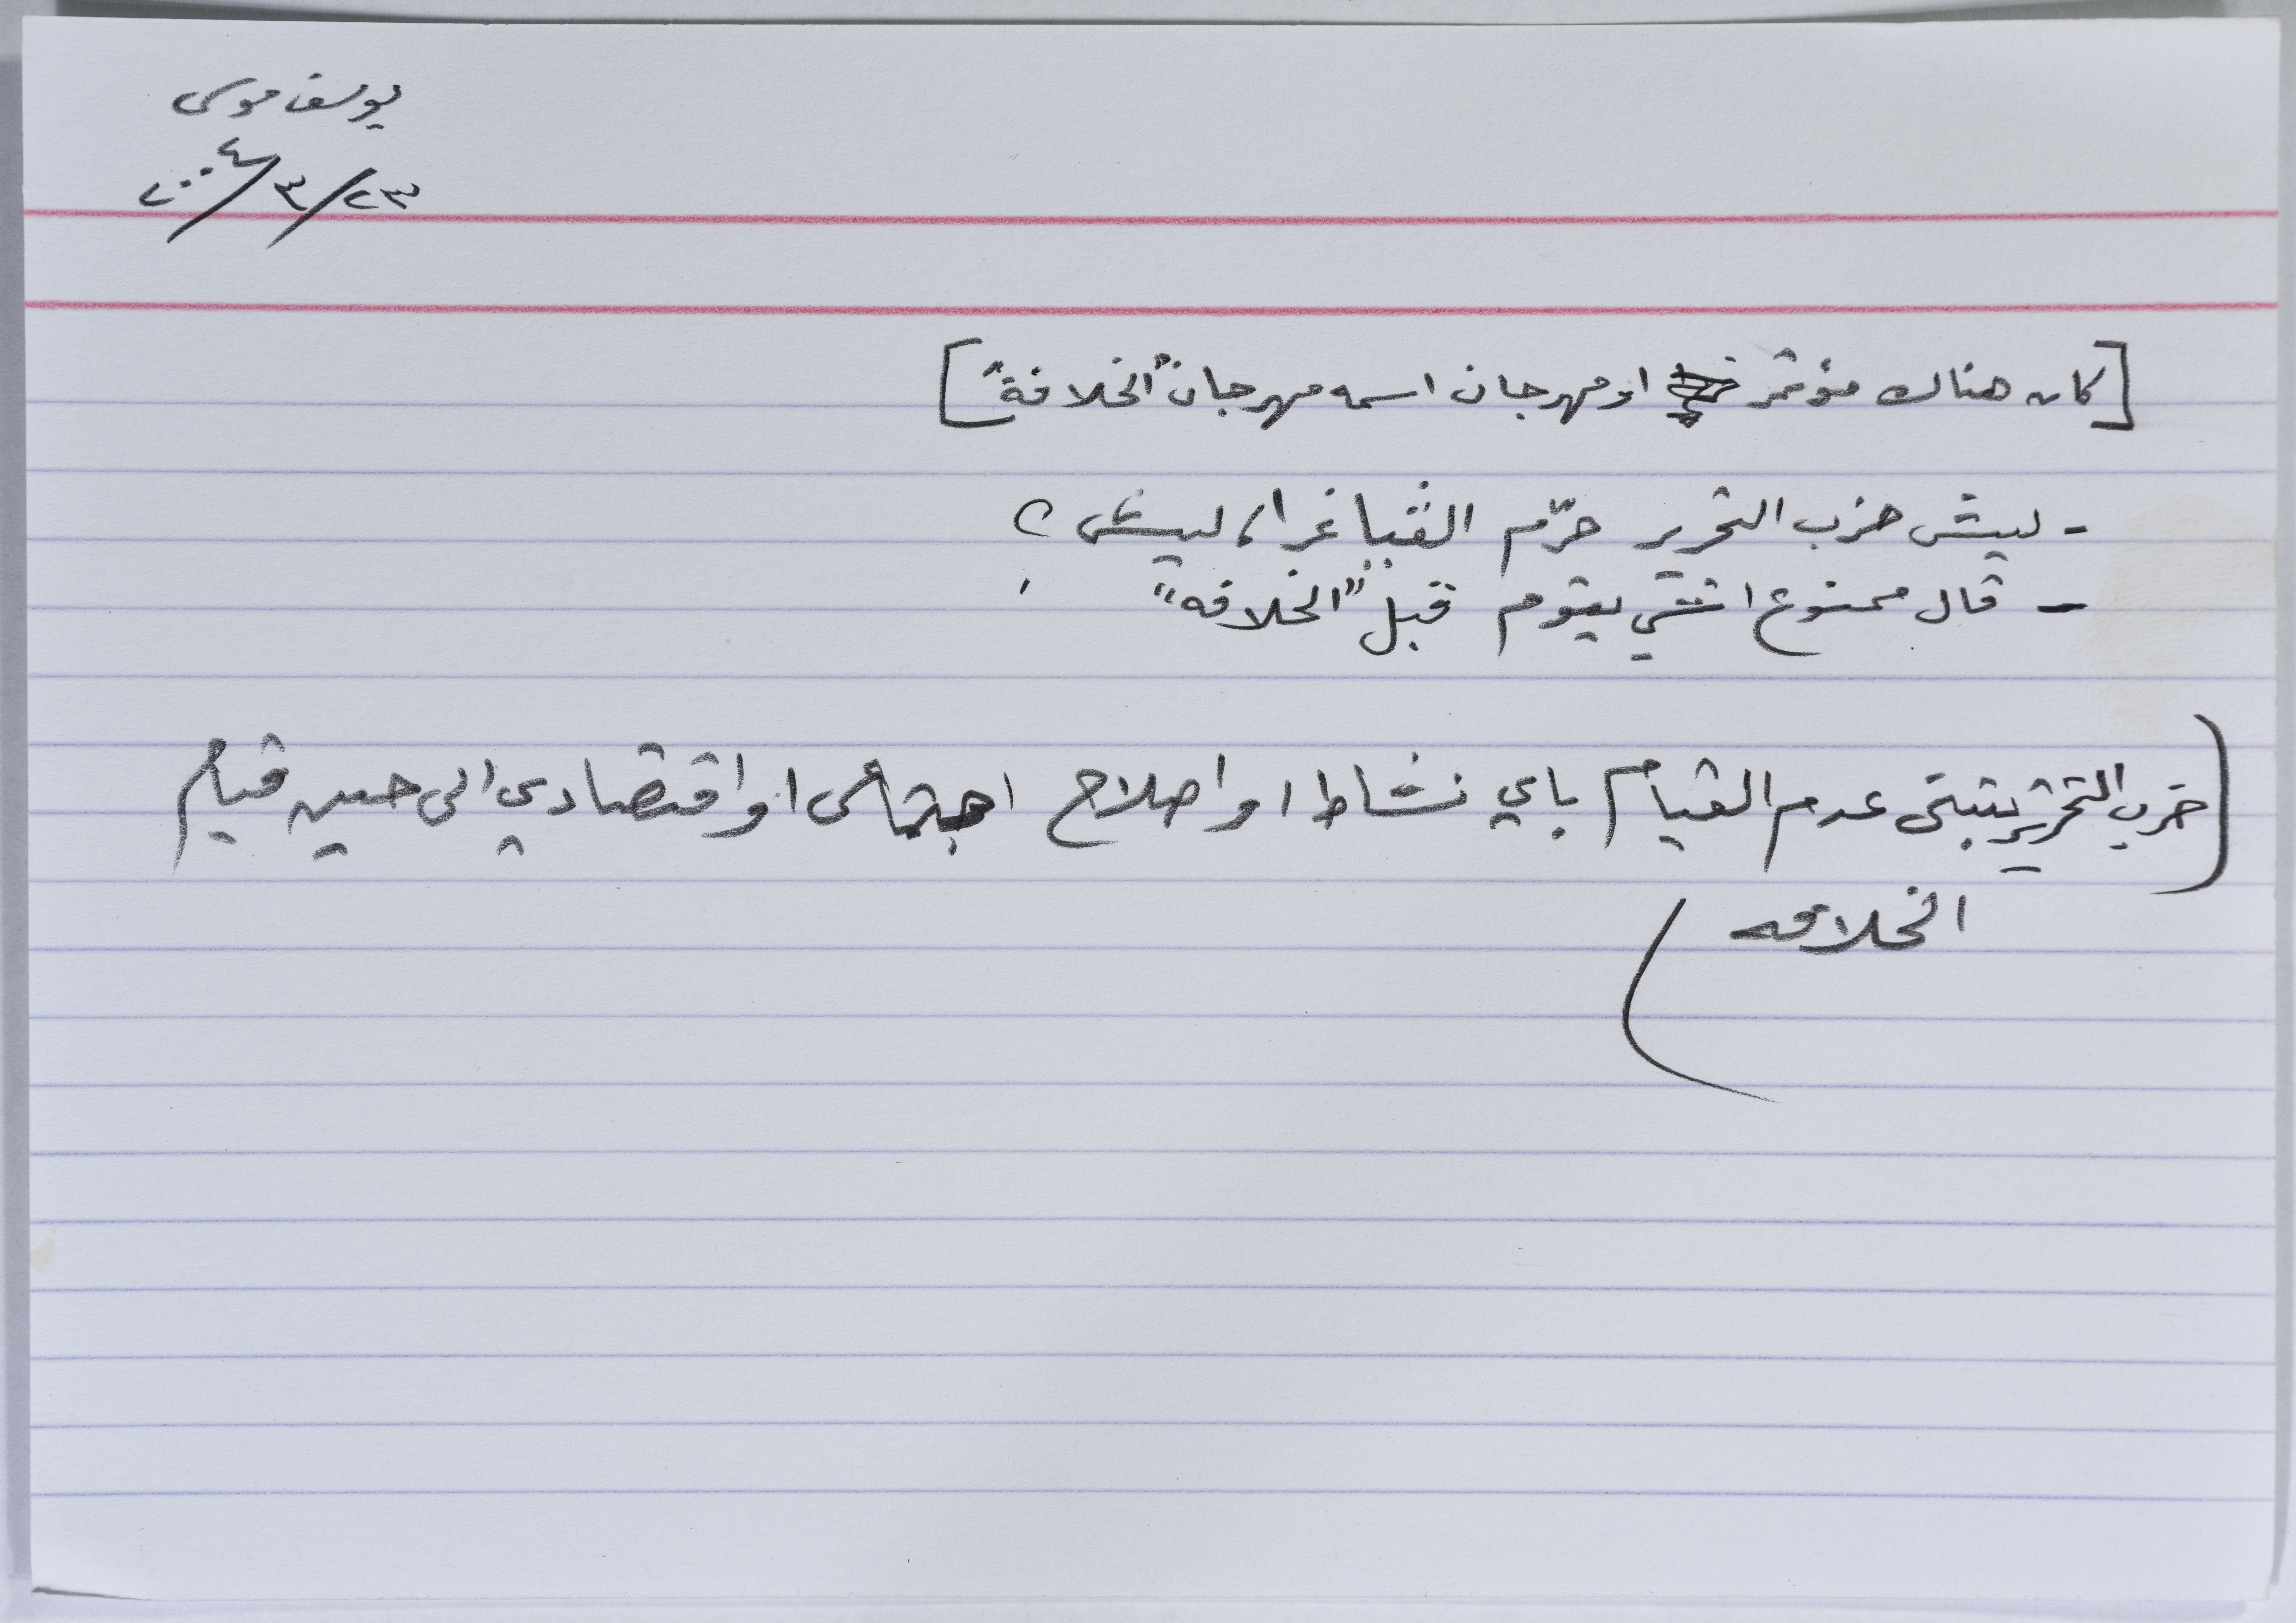 يوسف موسى
٢٣/٣/٢٠٠٤
[كان هناك مؤتمر او مهرجان اسمه مهرجان "الخلافة"]
- ليش حزب التحرير حرّم الڤياغرا، ليش؟
- قال ممنوع اشي يقوم قبل "الخلافه"!
(حزب التحرير يتبنى عدم القيام باي نشاط او اصلاح اجتماعي او اقتصادي الى حين قيام
الخلافه)